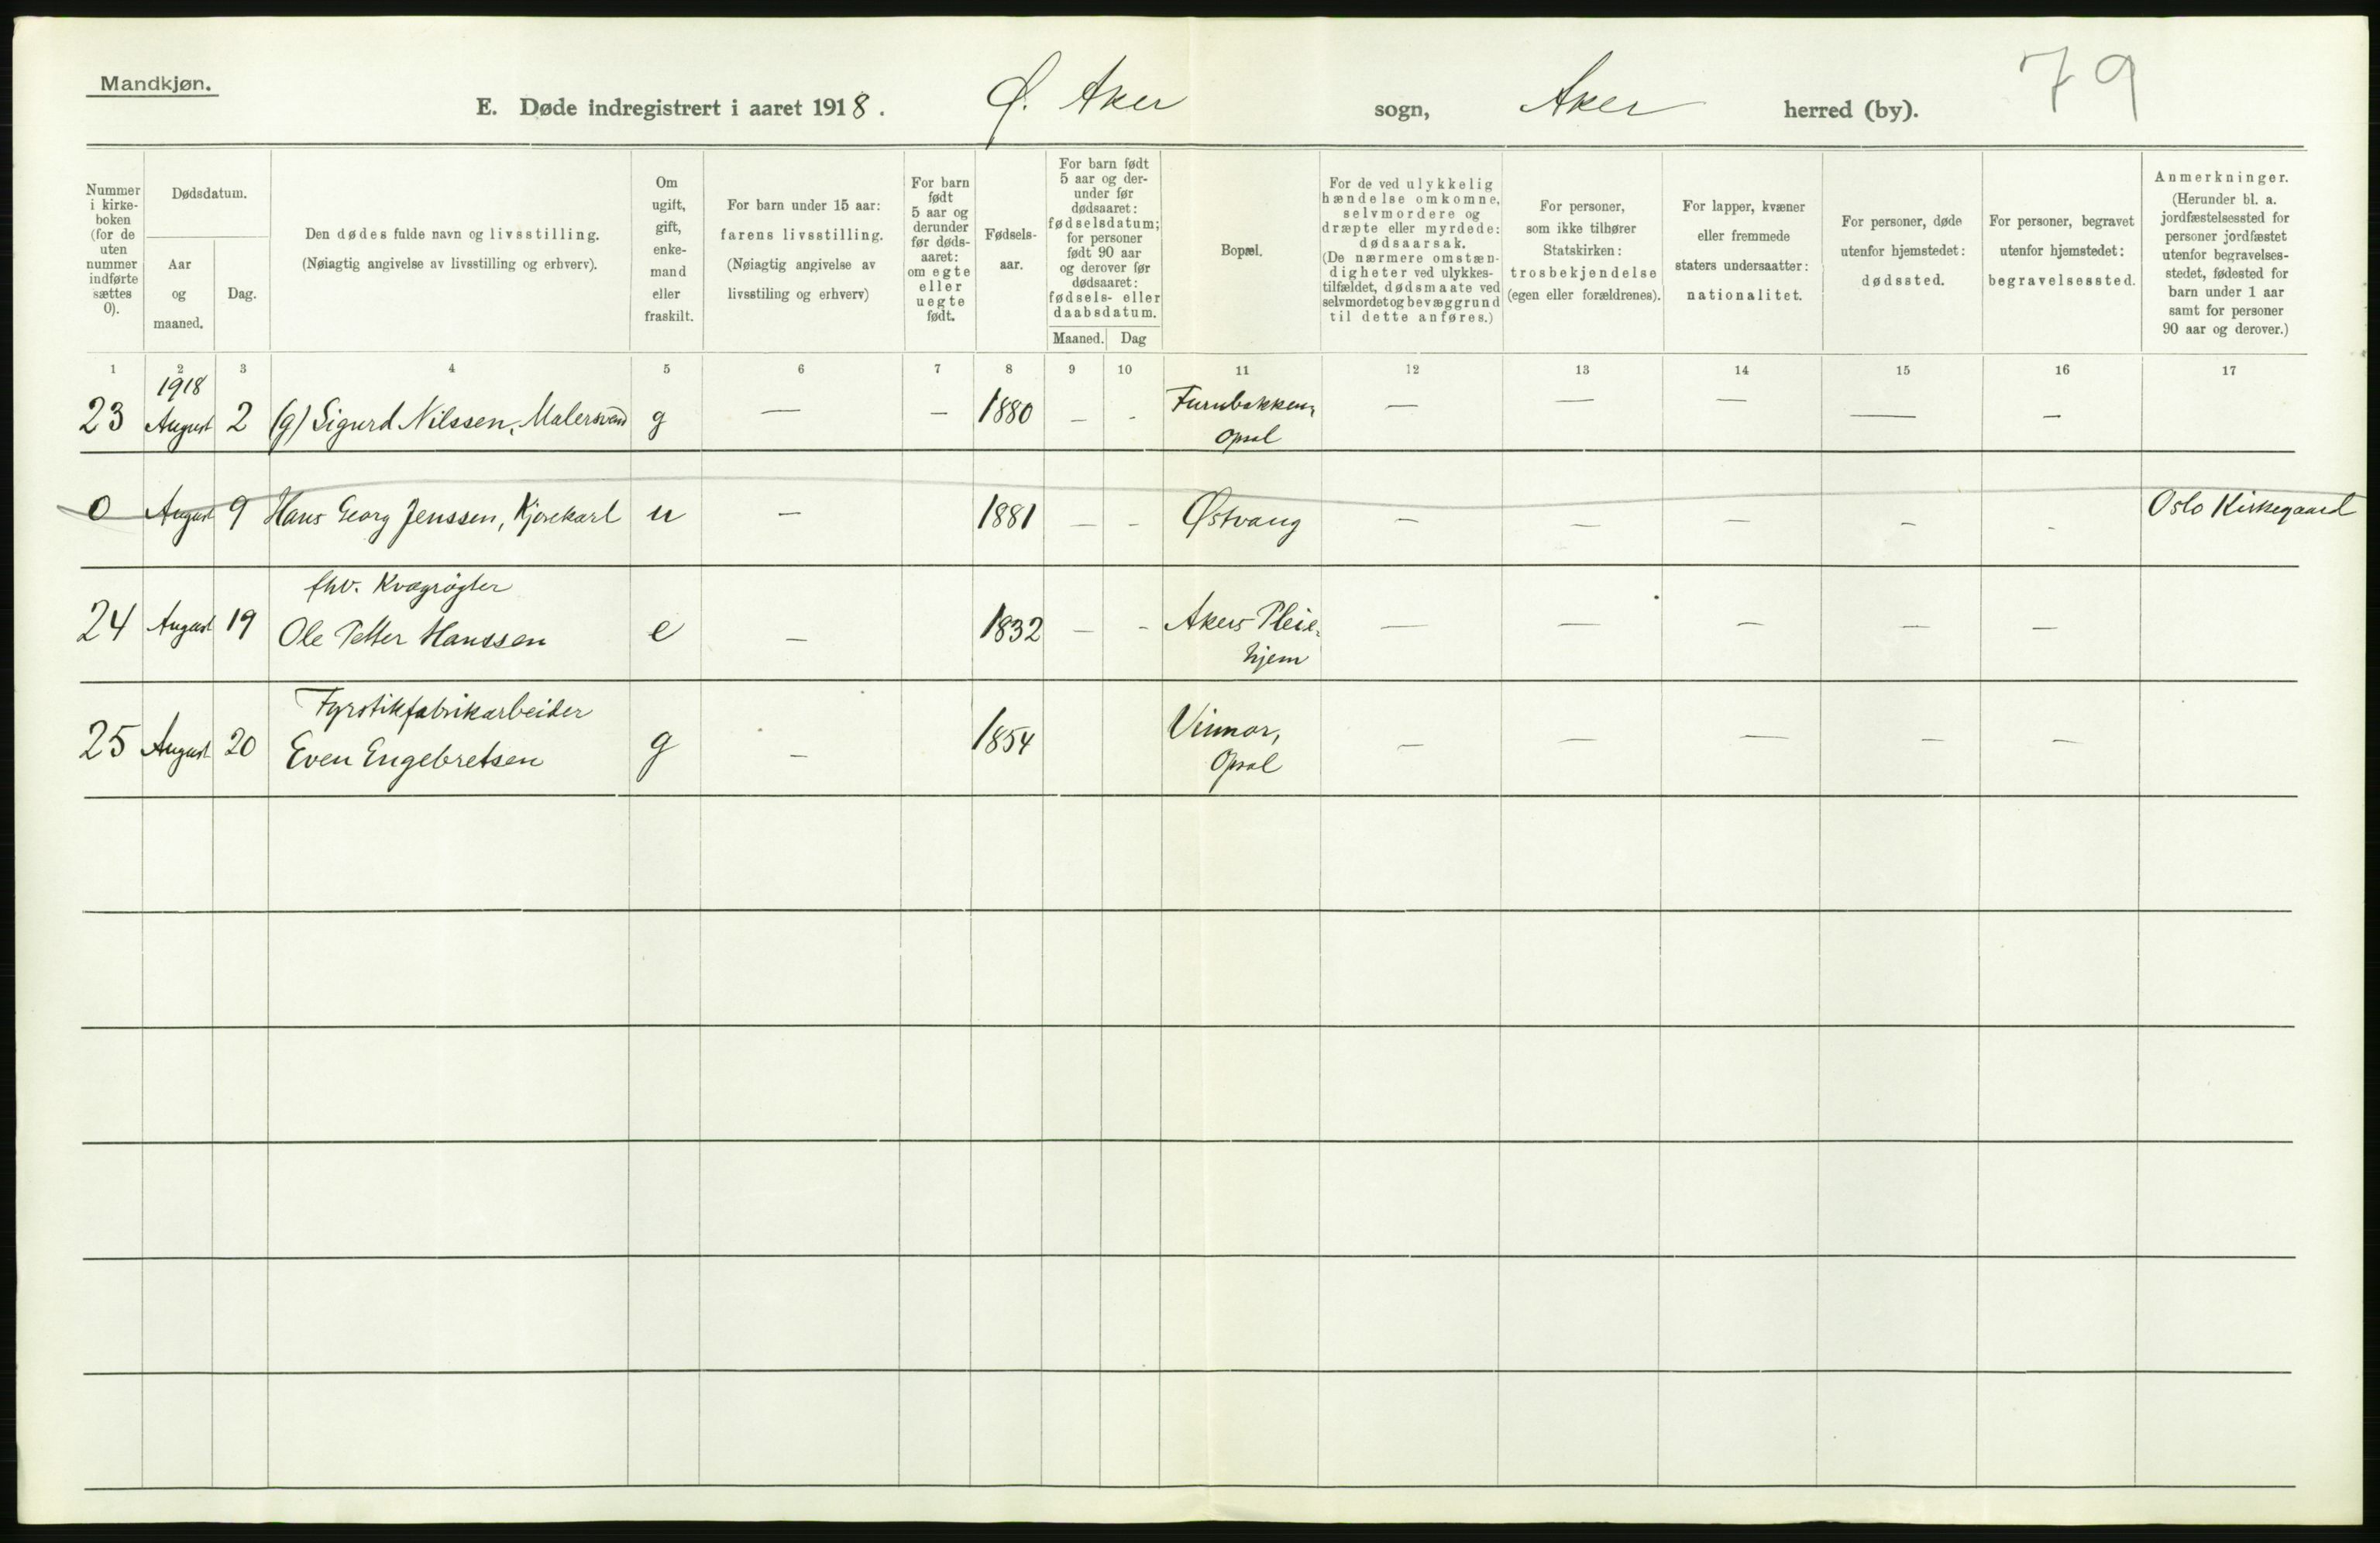 Mandkjøn.
79
E. Døde indregistrert i aaret 1918. Ø. Aker sogn, Aker herred (by).
Nummer i kirkeboken (for de uten nummer indførte sættes 0).
Dødsdatum.
Aar og maaned.
Dag.
Den dødes fulde navn og livsstilling.
(Nøiagtig angivelse av livsstilling og erhverv).
Om ugift, gift, enkemand eller fraskilt.
For barn under 15 aar: farens livsstilling.
(Nøiagtig angivelse av livsstiling og erhverv)
For barn født 5 aar og derunder før dødsaaret: om egte eller uegte født.
Fødselsaar.
For barn født 5 aar og derunder før dødsaaret: fødselsdatum; for personer født 90 aar og derover før dødsaaret: fødsels- eller daabsdatum.
Maaned. Dag
Bopæl.
For de ved ulykkelig hændelse omkomne, selvmordere og dræpte eller myrdede: dødsaarsak.
(De nærmere omstændigheter ved ulykkestilfældet, dødsmaate ved selvmordet og bevæggrund til dette anføres.)
For personer, som ikke tilhører Statskirken: trosbekjendelse (egen eller forældrenes).
For lapper, kvæner eller fremmede staters undersaatter: nationalitet.
For personer, døde utenfor hjemstedet: dødssted.
For personer, begravet utenfor hjemstedet: begravelsessted.
Anmerkninger.
(Herunder bl. a. jordfæstelsessted for personer jordfæstet utenfor begravelsesstedet, fødested for barn under 1 aar samt for personer 90 aar og derover.)
1 2 3 4 5 6 7 8 9 10 11 12 13 14 15 16 17
1918
23 August 2 (g) Sigurd Nilssen, Malersvend g — — 1880 — - Furubakken, — — — — —
Opsal
0 August 9 Hans Georg Jenssen, Kjørekarl u — 1881 — - Østvang — — — — - Oslo Kirkegaard
fhv. Kvægrøgter
24 August 19 Ole Petter Hanssen e — 1832 — - Akers Pleie- — — — — —
hjem
Fyrstikfabrikarbeider
25 August 20 Even Engebretsen g — 1854 Vinmor, — — — — —
Opsal